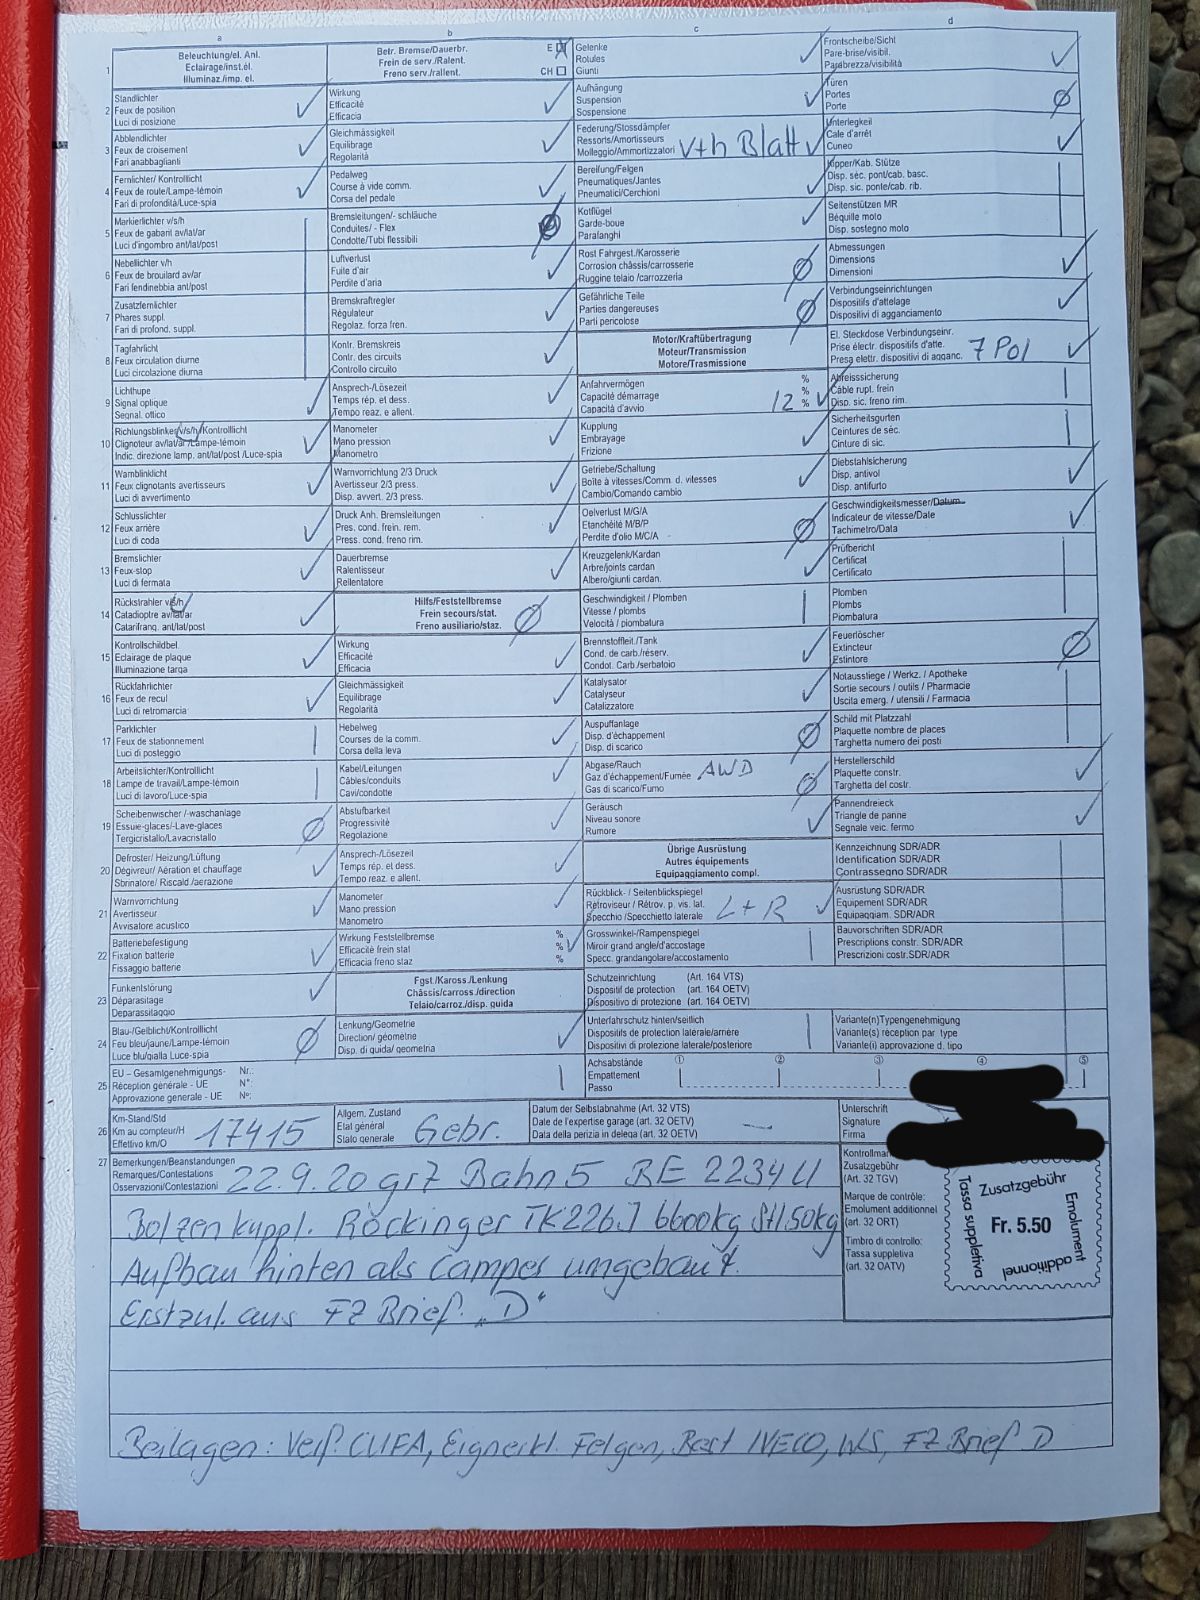 a
b
c
d
1
Beleuchtung/el. Anl.
Eclairage/inst.él.
Illuminaz./imp. el.
Betr. Bremse/Dauerbr.
Frein de serv./Ralent.
Freno serv./rallent.
E
CH
Gelenke
Rotules
Giunti
Frontscheibe/Sicht
Pare-brise/visibil.
Parabrezza/visibilità
2
Standlichter
Feux de position
Luci di posizione
Wirkung
Efficacité
Efficacia
Aufhängung
Suspension
Sospensione
Türen
Portes
Porte
3
Abblendlichter
Feux de croisement
Fari anabbaglianti
Gleichmässigkeit
Equilibrage
Regolarità
Federung/Stossdämpfer
Ressorts/Amortisseurs
Molleggio/Ammortizzatori
v+h Blatt
Unterlegkeil
Cale d'arrêt
Cuneo
4
Fernlichter/ Kontrollicht
Feux de route/Lampe-témoin
Fari di profondità/Luce-spia
Pedalweg
Course à vide comm.
Corsa del pedale
Bereifung/Felgen
Pneumatiques/Jantes
Pneumatici/Cerchioni
Kipper/Kab. Stütze
Disp. séc. pont/cab. basc.
Disp. sic. ponte/cab. rib.
5
Markierlichter v/s/h
Feux de gabarit av/lat/ar
Luci d'ingombro ant/lat/post
Bremsleitungen/- schläuche
Conduites/ - Flex
Condotte/Tubi flessibili
Kotflügel
Garde-boue
Parafanghi
Seitenstützen MR
Béquille moto
Disp. sostegno moto
6
Nebellichter v/h
Feux de brouillard av/ar
Fari fendinebbia ant/post
Luftverlust
Fuite d'air
Perdite d'aria
Rost Fahrgest./Karosserie
Corrosion châssis/carrosserie
Ruggine telaio /carrozzeria
Abmessungen
Dimensions
Dimensioni
7
Zusatzfernlichter
Phares suppl.
Fari di profond. suppl.
Bremskraftregler
Régulateur
Regolaz. forza fren.
Gefährliche Teile
Parties dangereuses
Parti pericolose
Verbindungseinrichtungen
Dispositifs d'attelage
Dispositivi di agganciamento
8
Tagfahrlicht
Feux circulation diurne
Luci circolazione diurna
Kontr. Bremskreis
Contr. des circuits
Controllo circuito
Motor/Kraftübertragung
Moteur/Transmission
Motore/Trasmissione
El. Steckdose Verbindungseinr.
Prise électr. dispositifs d'atte.
Presa elettr. dispositivi di agganc.
7 Pol
9
Lichthupe
Signal optique
Segnal. ottico
Ansprech-/Lösezeit
Temps rép. et dess.
Tempo reaz. e allent.
Anfahrvermögen
Capacité démarrage
Capacità d'avvio
%
%
%
12
Abreisssicherung
Câble rupt. frein
Disp. sic. freno rim.
10
Richtungsblinker v/s/h /Kontrolllicht
Clignoteur av/lat/ar /Lampe-témoin
Indic. direzione lamp. ant/lat/post /Luce-spia
Manometer
Mano pression
Manometro
Kupplung
Embrayage
Frizione
Sicherheitsgurten
Ceintures de séc.
Cinture di sic.
11
Warnblinklicht
Feux clignotants avertisseurs
Luci di avvertimento
Warnvorrichtung 2/3 Druck
Avertisseur 2/3 press.
Disp. avvert. 2/3 press.
Getriebe/Schaltung
Boîte à vitesses/Comm. d. vitesses
Cambio/Comando cambio
Diebstahlsicherung
Disp. antivol
Disp. antifurto
12
Schlusslichter
Feux arrière
Luci di coda
Druck Anh. Bremsleitungen
Pres. cond. frein. rem.
Press. cond. freno rim.
Oelverlust M/G/A
Etanchéité M/B/P
Perdite d'olio M/C/A
Geschwindigkeitsmesser/Datum
Indicateur de vitesse/Date
Tachimetro/Data
13
Bremslichter
Feux-stop
Luci di fermata
Dauerbremse
Ralentisseur
Rellentatore
Kreuzgelenk/Kardan
Arbre/joints cardan
Albero/giunti cardan.
Prüfbericht
Certificat
Certificato
14
Rückstrahler v/s/h
Catadioptre av/lat/ar
Catarifrang. ant/lat/post
Hilfs/Feststellbremse
Frein secours/stat.
Freno ausiliario/staz.
Geschwindigkeit / Plomben
Vitesse / plombs
Velocità / piombatura
Plomben
Plombs
Piombatura
15
Kontrollschildbel.
Eclairage de plaque
Illuminazione targa
Wirkung
Efficacité
Efficacia
Brennstoffleit./Tank
Cond. de carb./réserv.
Condot. Carb /serbatoio
Feuerlöscher
Extincteur
Estintore
16
Rückfahrlichter
Feux de recul
Luci di retromarcia
Gleichmässigkeit
Equilibrage
Regolarità
Katalysator
Catalyseur
Catalizzatore
Notausstiege / Werkz. / Apotheke
Sortie secours / outils / Pharmacie
Uscita emerg. / utensili / Farmacia
17
Parklichter
Feux de stationnement
Luci di posteggio
Hebelweg
Courses de la comm.
Corsa della leva
Auspuffanlage
Disp. d'échappement
Disp. di scarico
Schild mit Platzzahl
Plaquette nombre de places
Targhetta numero dei posti
18
Arbeitslichter/Kontrolllicht
Lampe de travail/Lampe-témoin
Luci di lavoro/Luce-spia
Kabel/Leitungen
Câbles/conduits
Cavi/condotte
Abgase/Rauch
Gaz d'échappement/Fumée
Gas di scarico/Fumo
AWD
Herstellerschild
Plaquette constr.
Targhetta del costr.
19
Scheibenwischer /-waschanlage
Essuie-glaces/-Lave-glaces
Tergicristallo/Lavacristallo
Abstufbarkeit
Progressivité
Regolazione
Geräusch
Niveau sonore
Rumore
Pannendreieck
Triangle de panne
Segnale veic. fermo
20
Defroster/ Heizung/Lüftung
Dégivreur/ Aération et chauffage
Sbrinatore/ Riscald /aerazione
Ansprech-/Lösezeit
Temps rép. et dess.
Tempo reaz. e allent.
Übrige Ausrüstung
Autres équipements
Equipaggiamento compl.
Kennzeichnung SDR/ADR
Identification SDR/ADR
Contrassegno SDR/ADR
21
Warnvorrichtung
Avertisseur
Avvisatore acustico
Manometer
Mano pression
Manometro
Rückblick- / Seitenblickspiegel
Rétroviseur / Rétrov. p. vis. lat.
Specchio /Specchietto laterale
L + R
Ausrüstung SDR/ADR
Equipement SDR/ADR
Equipaggiam. SDR/ADR
22
Batteriebefestigung
Fixation batterie
Fissaggio batterie
Wirkung Feststellbremse
Efficacité frein stat
Efficacia freno staz
%
%
%
Grosswinkel-/Rampenspiegel
Miroir grand angle/d'accostage
Specc. grandangolare/accostamento
Bauvorschriften SDR/ADR
Prescriptions constr. SDR/ADR
Prescrizioni costr.SDR/ADR
23
Funkentstörung
Déparasitage
Deparassitaggio
Fgst./Kaross./Lenkung
Châssis/carross./direction
Telaio/carroz./disp. guida
Schutzeinrichtung (Art. 164 VTS)
Dispositif de protection (art. 164 OETV)
Dispositivo di protezione (art. 164 OETV)
24
Blau-/Gelblicht/Kontrolllicht
Feu bleu/jaune/Lampe-témoin
Luce blu/gialla Luce-spia
Lenkung/Geometrie
Direction/ géométrie
Disp. di guida/ geometria
Unterfahrschutz hinten/seitlich
Dispositifs de protection latérale/arrière
Dispositivi di protezione laterale/posteriore
Variante(n)Typengenehmigung
Variante(s) réception par type
Variante(i) approvazione d. tipo
25
EU – Gesamtgenehmigungs- Nr.:
Réception générale - UE N°:
Approvazione generale - UE N°:
Achsabstände
Empattement
Passo
① ② ③ ④ ⑤
26
Km-Stand/Std
Km au compteur/H
Effettivo km/O
17415
Allgem. Zustand
Etat général
Stato generale
Gebr.
Datum der Selbstabnahme (Art. 32 VTS)
Date de l'expertise garage (art. 32 OETV)
Data della perizia in delega (art. 32 OETV)
Unterschrift
Signature
Firma
27
Bemerkungen/Beanstandungen
Remarques/Contestations
Osservazioni/Contestazioni
22.9.20 gr7 Bahn 5 BE 2234 U
Bolzenkuppl. Rockinger TK226.J 6600kg Stl.50kg
Aufbau hinten als Camper umgebaut.
Erstzul. aus FZ Brief „D“
Zusatzgebühr
(Art. 32 TGV)
Marque de contrôle:
Emolument additionnel
(art. 32 ORT)
Timbro di controllo:
Tassa suppletiva
(art. 32 OATV)
Zusatzgebühr
Emolument
additionnel
Tassa suppletiva
Fr. 5.50
Beilagen: Verif. CUFA, Eignerkl. Felgen, Best IVECO, WS, FZ Brief D